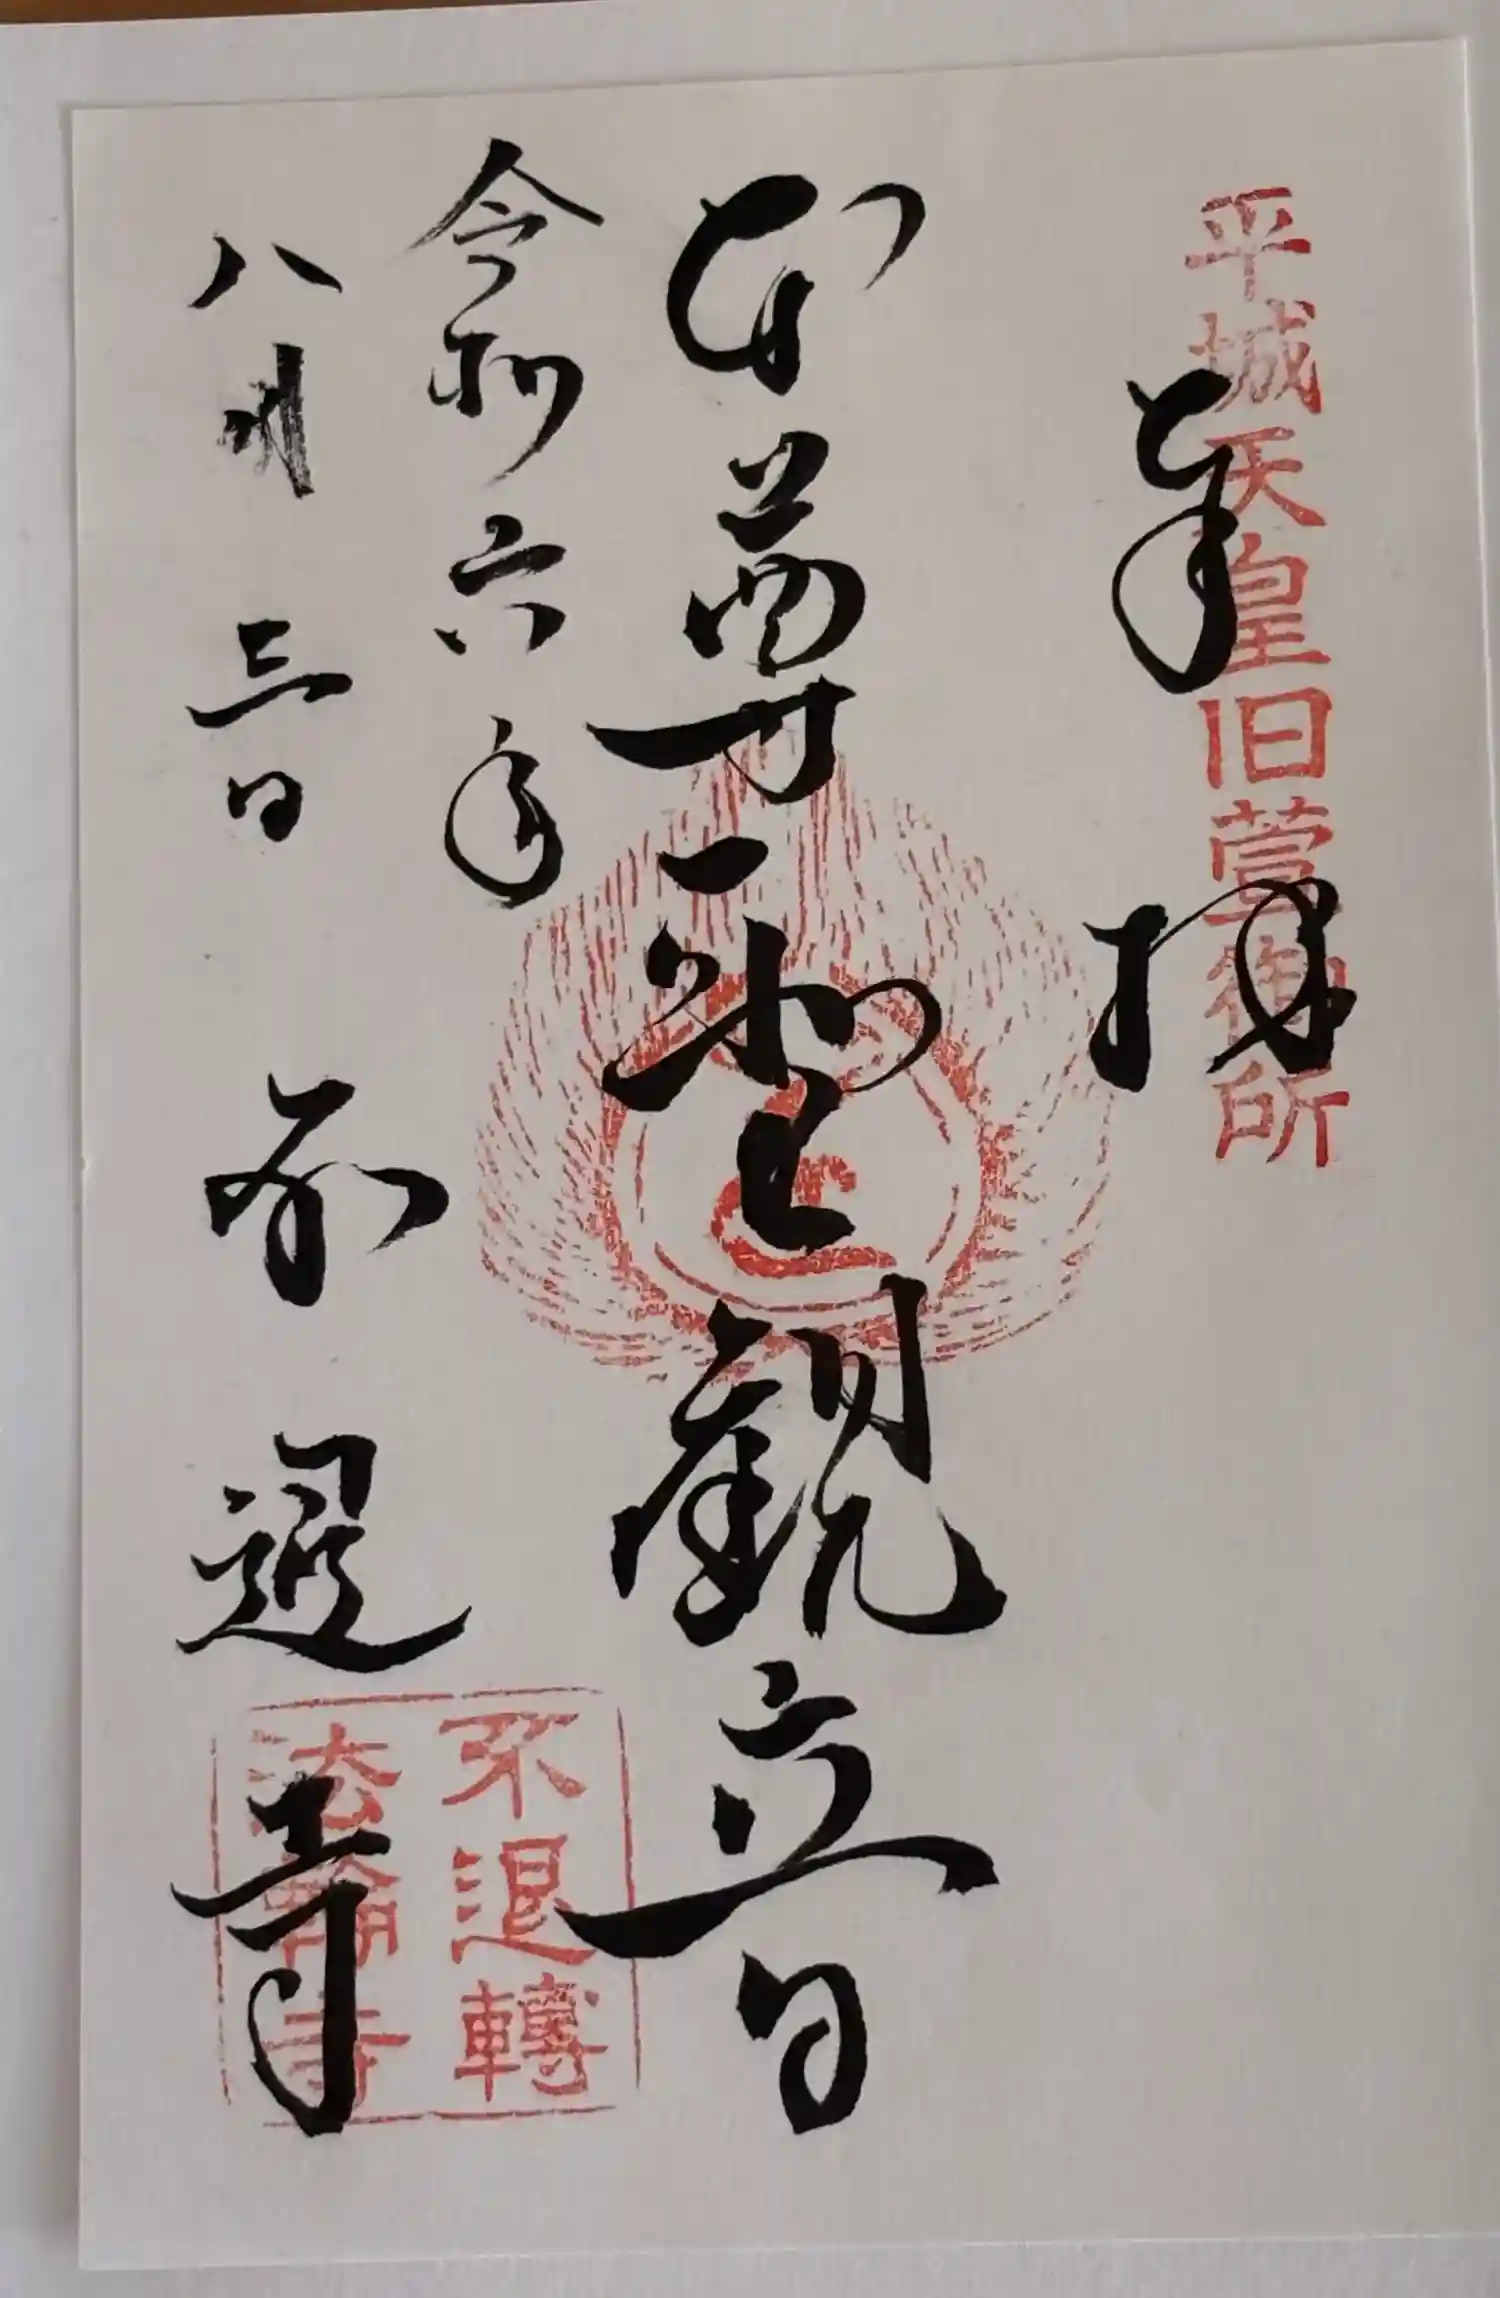 平城天皇旧萱御所
奉拝
本尊聖観音
令和六年
八月三日
不退寺
不退轉
法輪寺